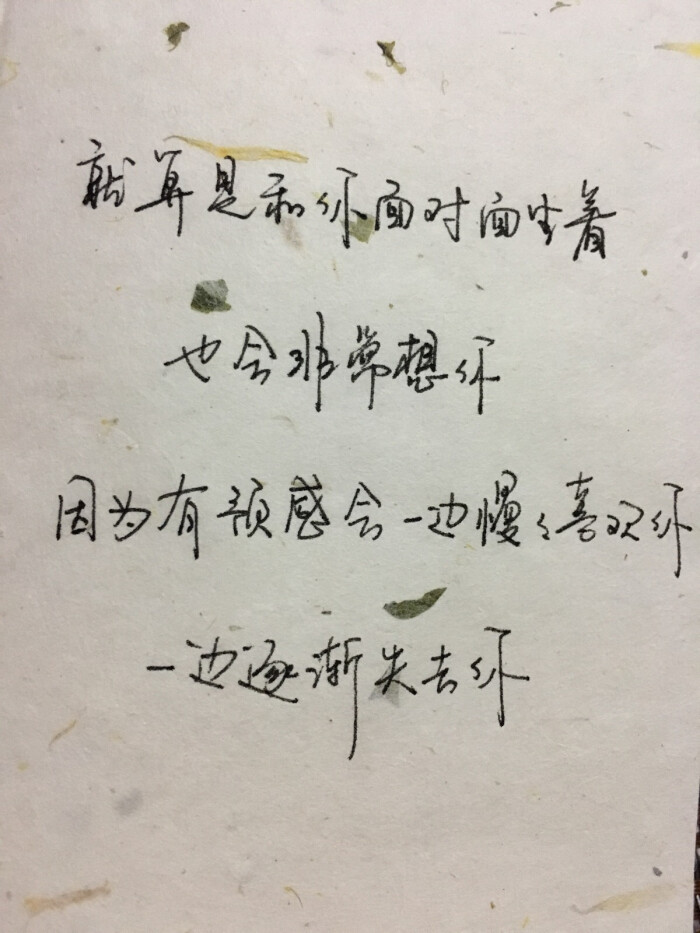 就算是和你面对面坐着
也会非常想你
因为有预感会一边慢々喜欢你
一边逐渐失去你